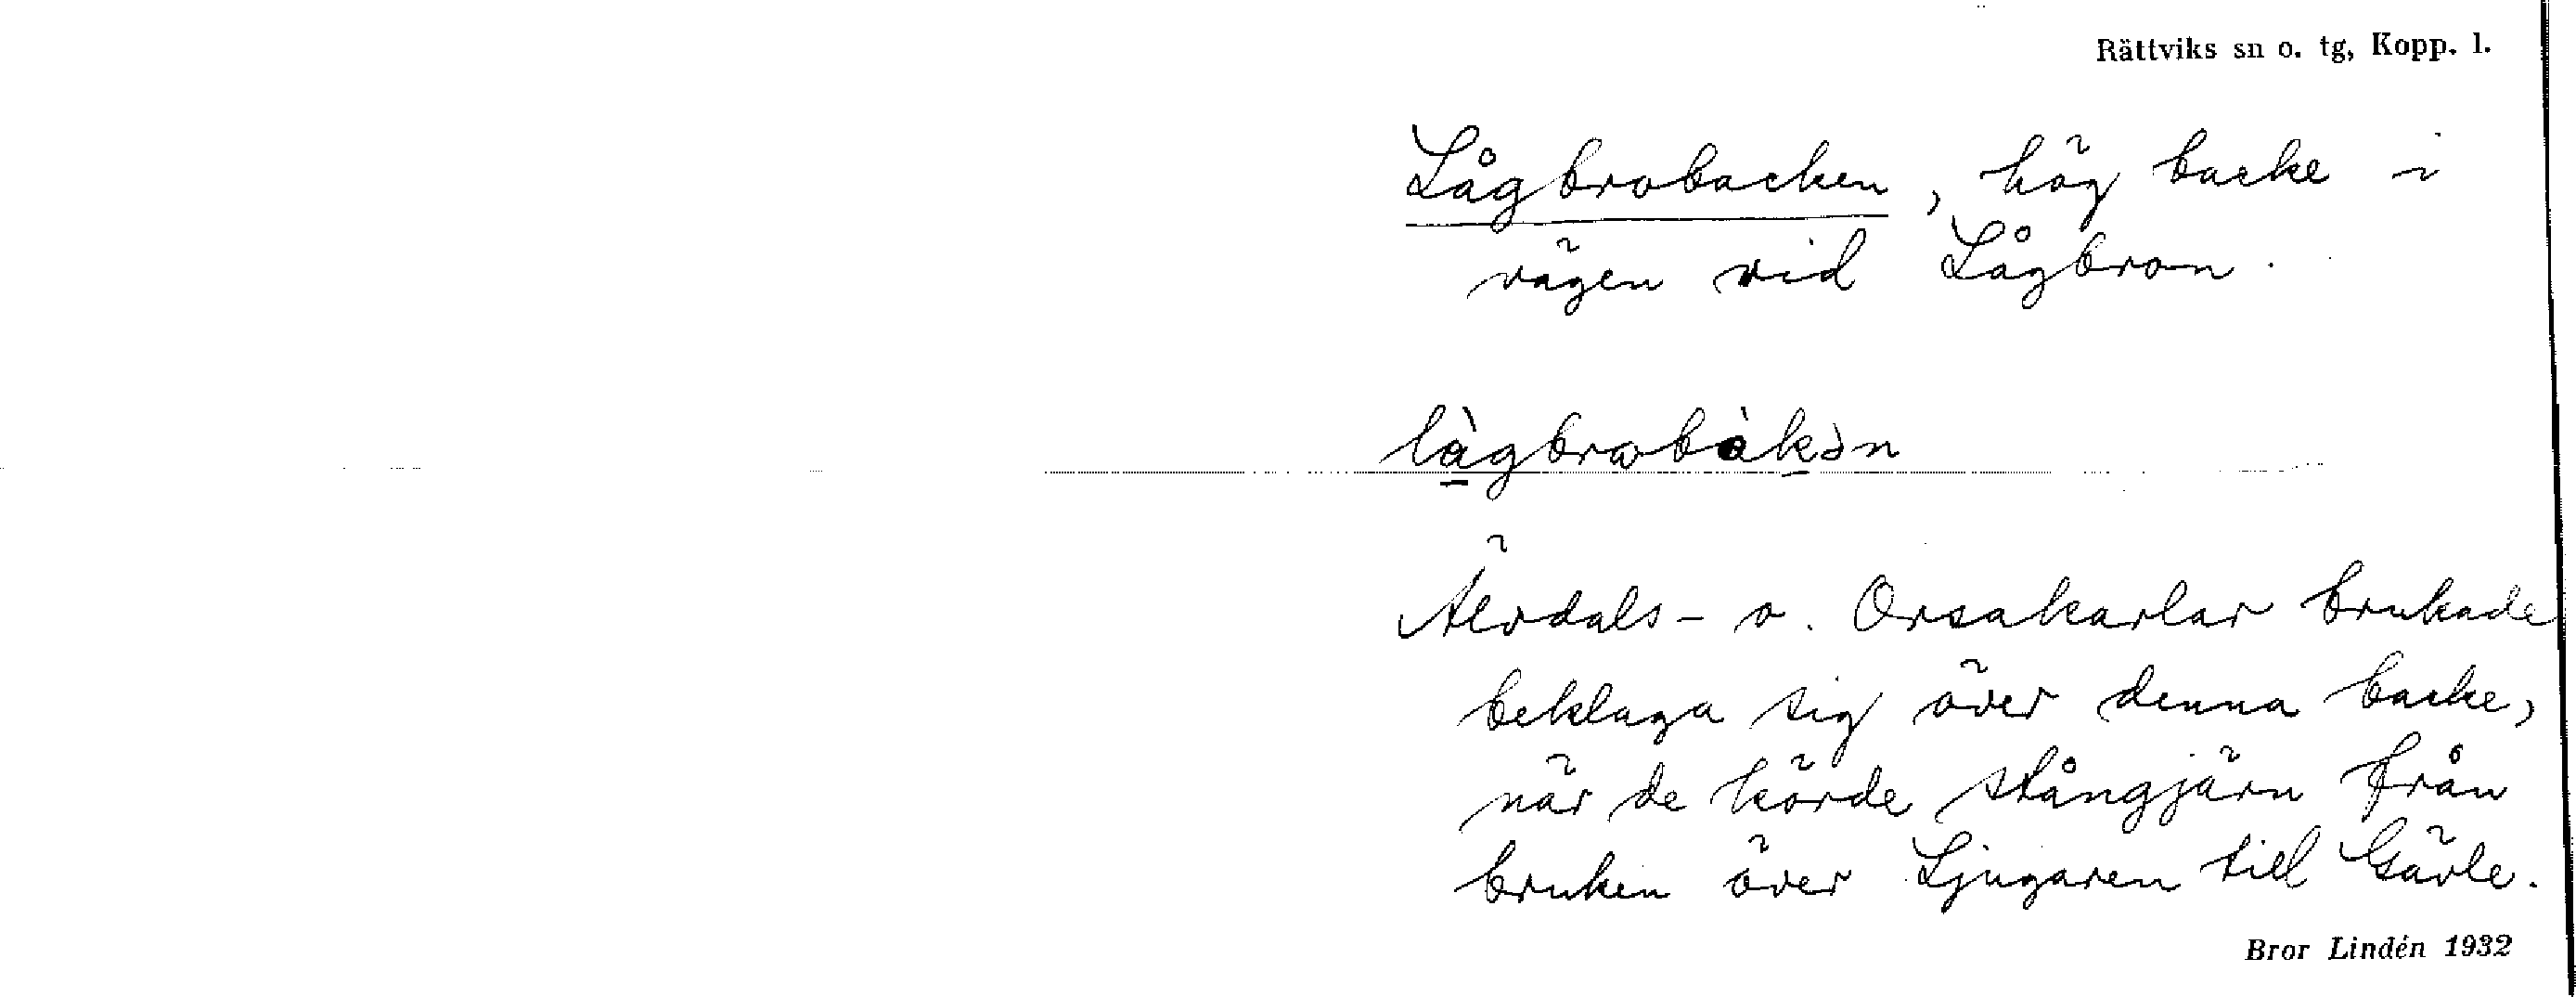 Rättviks sn o. tg, Kopp. l.
Lågbrobacken, hög backe i
vägen vid Lågbron.
là̱gbrωbàḵən
Älvdals- o. Orsakarlar brukade
beklaga sig över denna backe,
när de körde stångjärn från
bruken över Ljugaren till Gävle.
Bror Lindén 1932